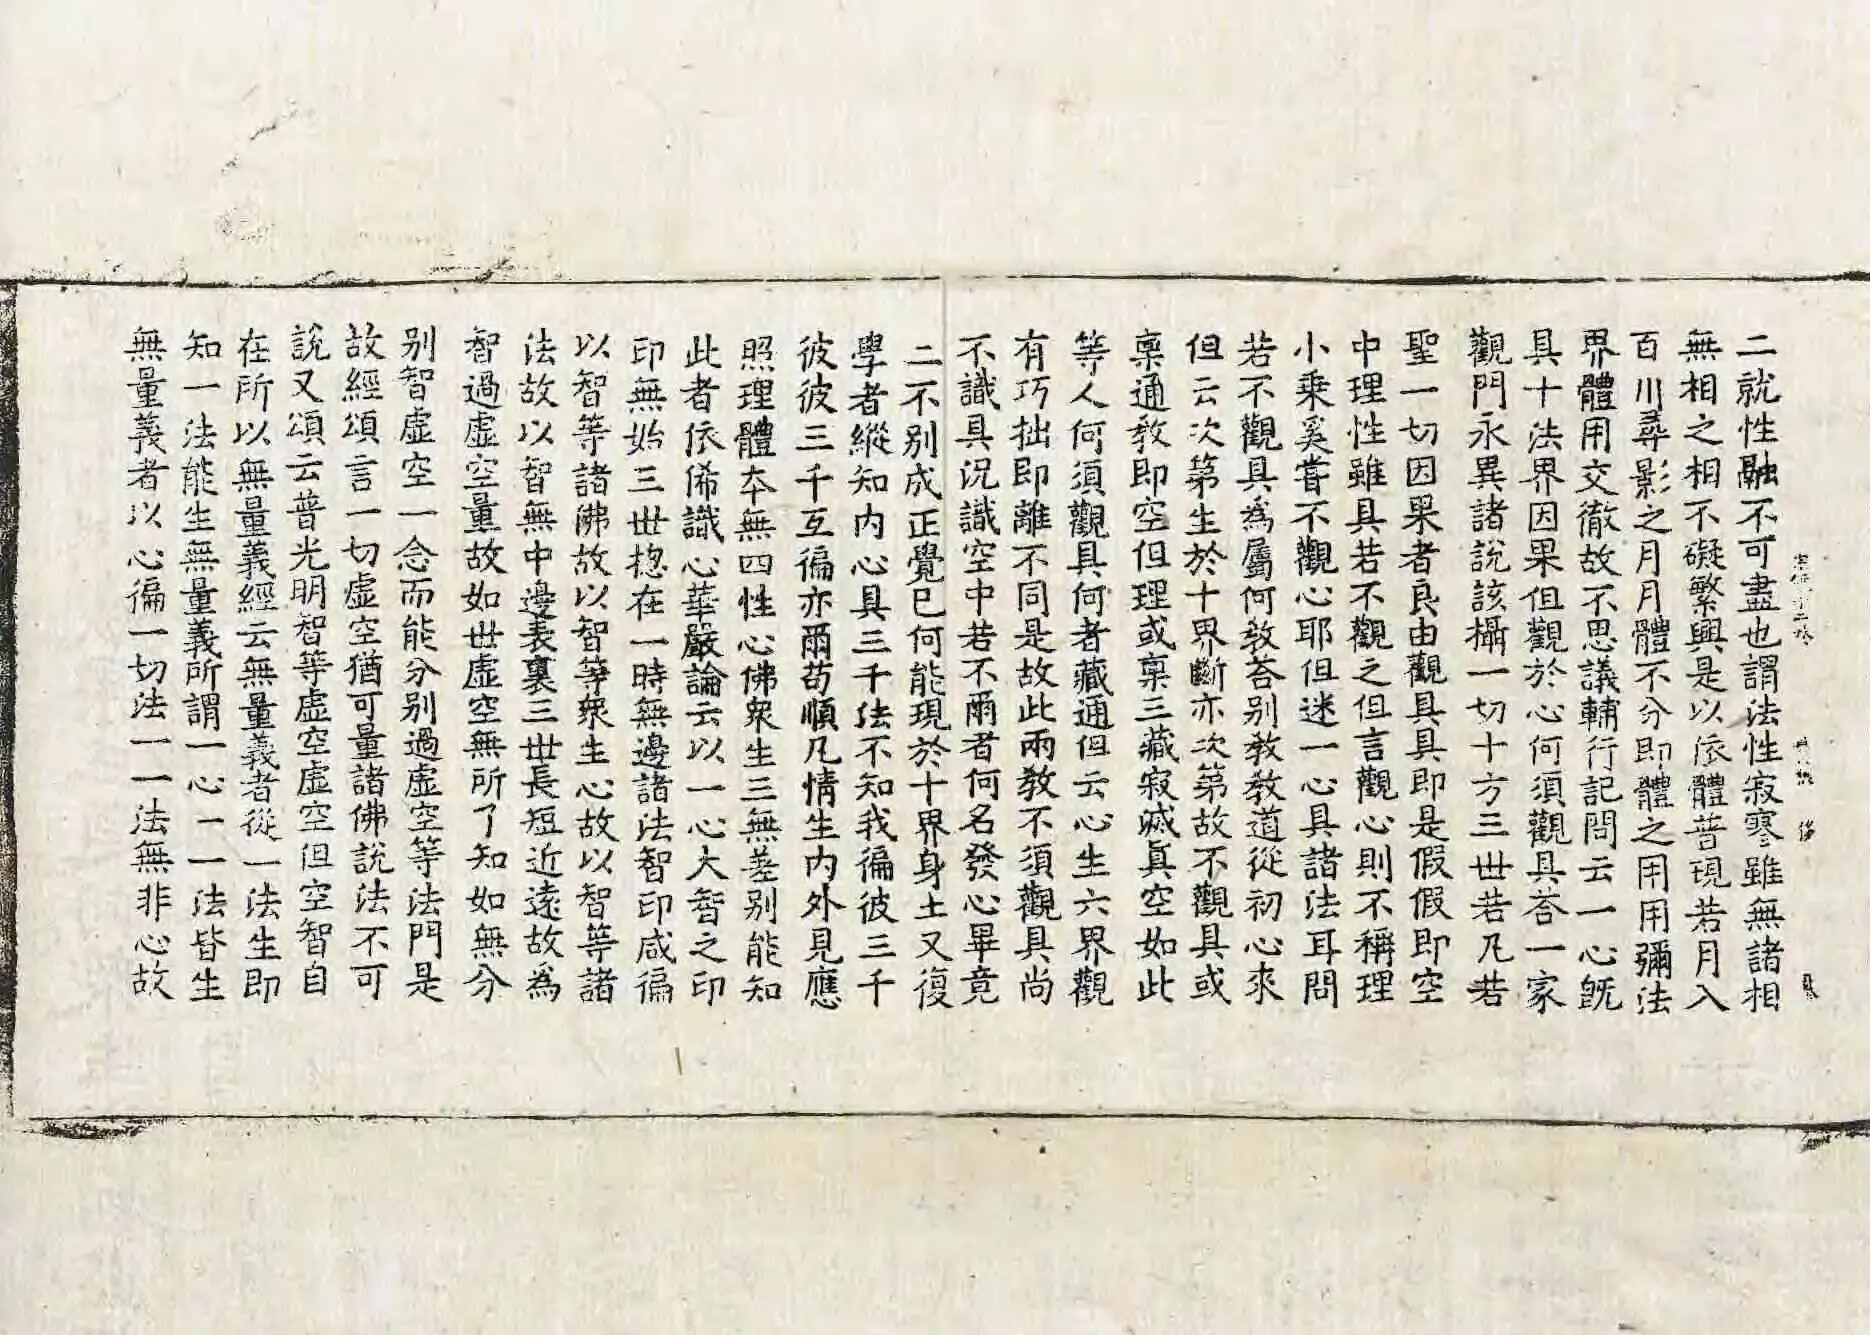 二就性融不可盡也謂法性寂寥雖無諸相
無相之相不礙繁興是以依體普現若月入
百川尋影之月月體不分即體之用用彌法
界體用交徹故不思議輔行記問云一心旣
具十法界因果但觀於心何須觀具荅一家
觀門永異諸說該攝一切十方三世若凡若
聖一切因果者良由觀具具即是假假即空
中理性雖具若不觀之但言觀心則不稱理
小乘奚嘗不觀心耶但迷一心具諸法耳問
若不觀具為屬何敎荅別敎敎道從初心來
但云次第生於十界斷亦次第故不觀具或
稟通敎即空但理或稟三藏寂滅眞空如此
等人何須觀具何者藏通但云心生六界觀
有巧拙即離不同是故此兩敎不須觀具尚
不識具況識空中若不爾者何名發心畢竟
二不別成正覺已何能現於十界身土又復
學者縱知內心具三千法不知我徧彼三千
彼彼三千互徧亦爾苟順凡情生內外見應
照理體本無四性心佛衆生三無差別能知
此者依俙識心華嚴論云以一心大智之印
印無始三世揔在一時無邊諸法智印咸徧
以智等諸佛故以智等衆生心故以智等諸
法故以智無中邊表裏三世長短近遠故為
智過虛空量故如世虛空無所了知如無分
別智虛空一念而能分別過虛空等法門是
故經頌言一切虛空猶可量諸佛說法不可
說又頌云普光明智等虛空虛空但空智自
在所以無量義經云無量義者從一法生即
知一法能生無量義所謂一心一一法皆生
無量義者以心徧一切法一一法無非心故